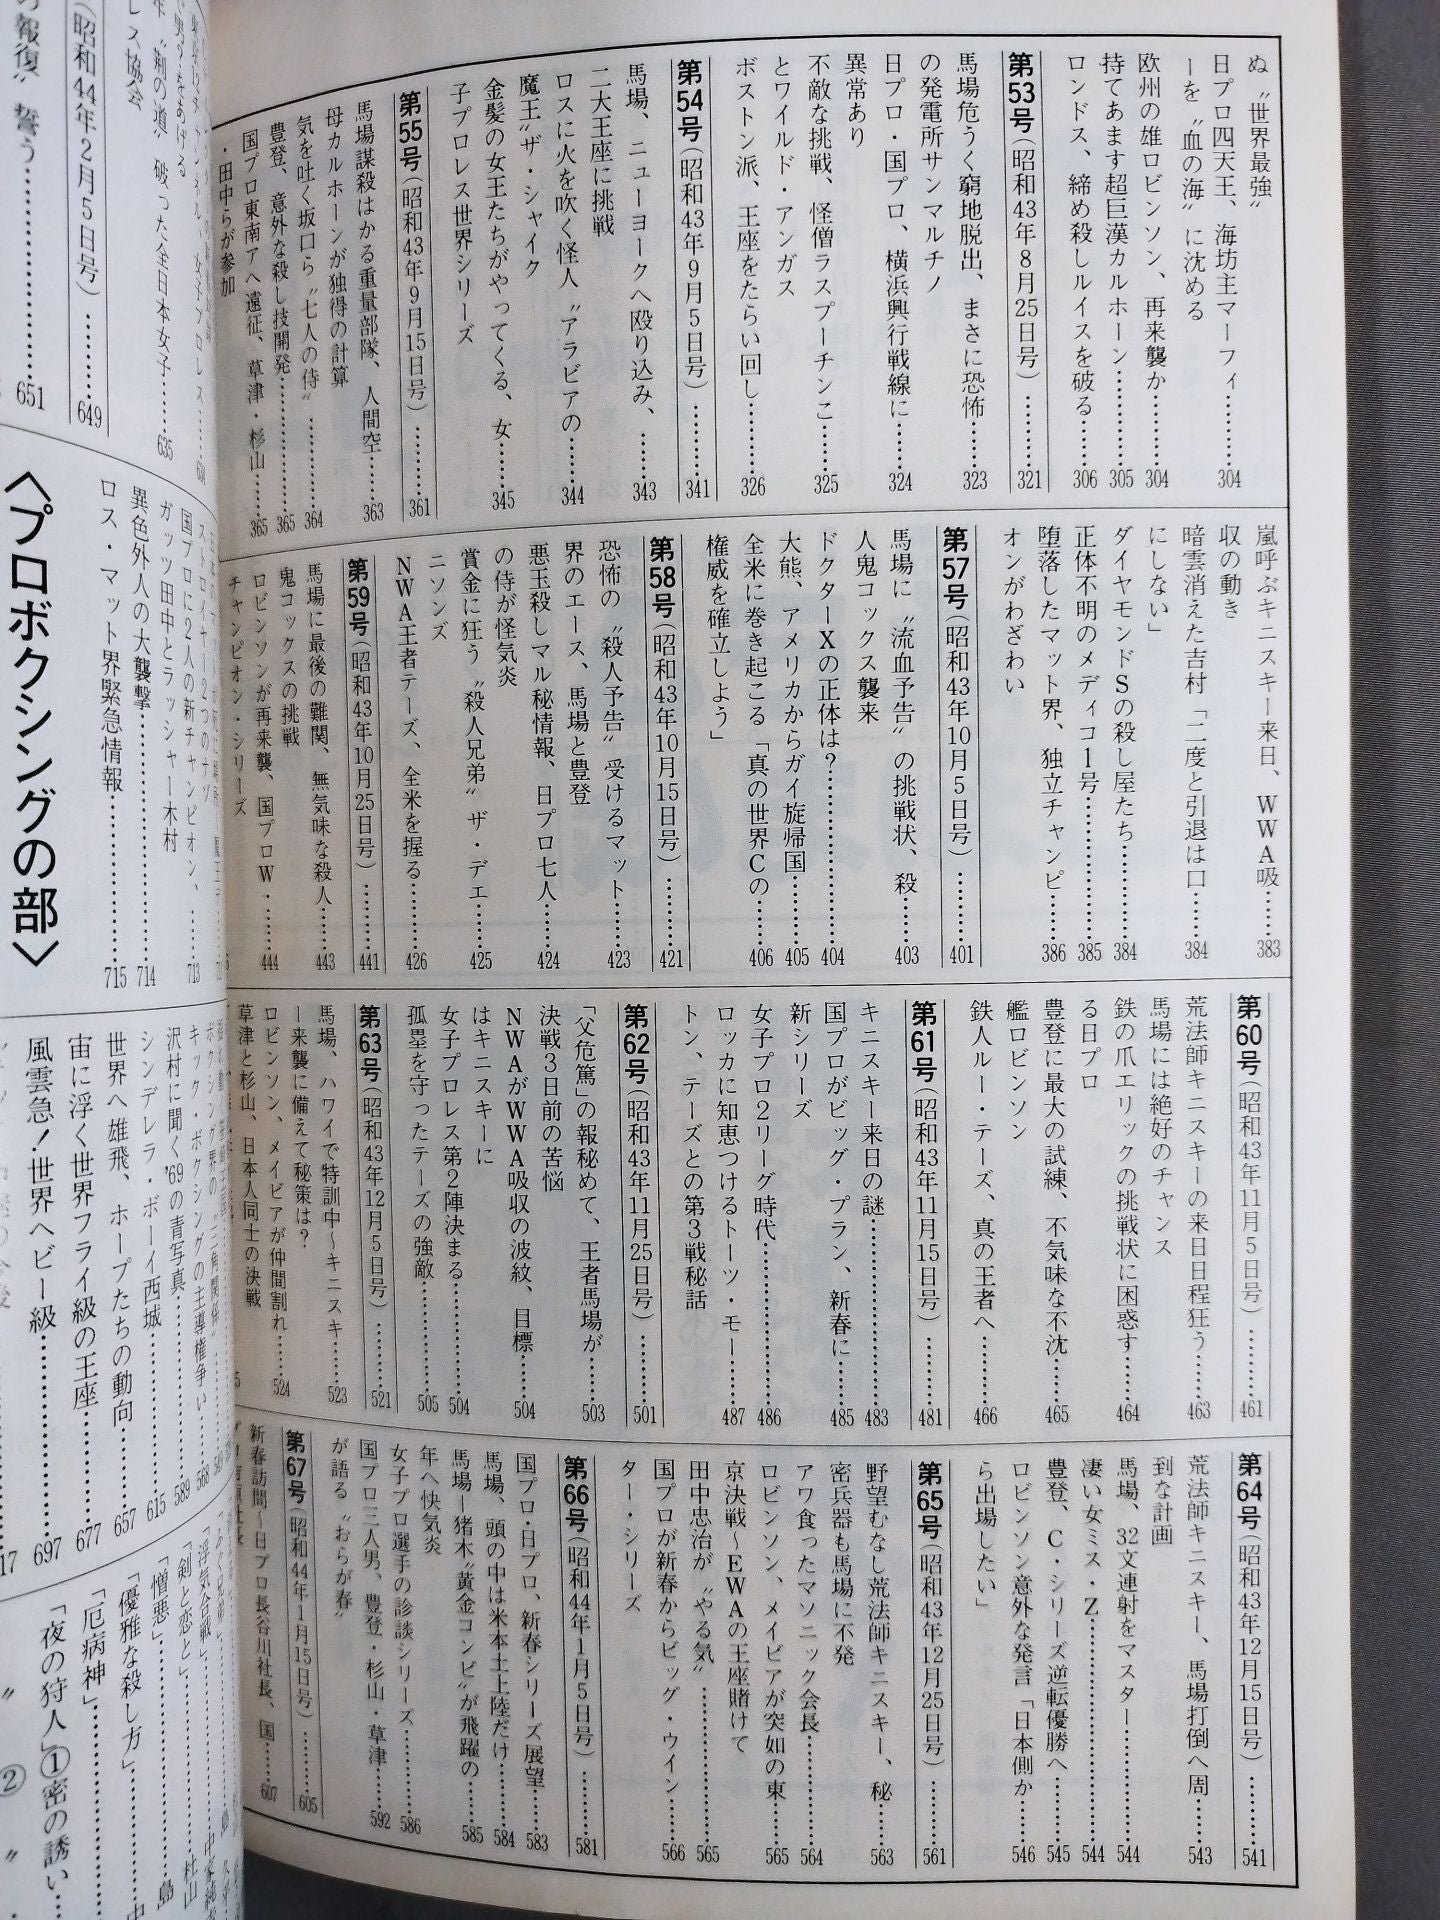 ぬ〝世界最強〟
日プロ四天王、海坊主マーフィ………304
ーを〝血の海〟に沈める
欧州の雄ロビンソン、再来襲か………304
持てあます超巨漢カルホーン………305
ロンドス、締め殺しルイスを破る………306
第53号(昭和43年8月25日号)………321
馬場危うく窮地脱出、まさに恐怖………323
の発電所サンマルチノ
日プロ・国プロ、横浜興行戦線に………324
異常あり
不敵な挑戦、怪僧ラスプーチンこ………325
とワイルド・アンガス
ボストン派、王座をたらい回し………326
第54号(昭和43年9月5日号)………341
馬場、ニューヨークへ殴り込み、………343
二大王座に挑戦
ロスに火を吹く怪人〝アラビアの………344
魔王〟ザ・シャイク
金髪の女王たちがやってくる、女………345
子プロレス世界シリーズ
第55号(昭和43年9月15日号)………361
馬場謀殺はかる重量部隊、人間空………363
母カルホーンが独得の計算
気を吐く坂口ら〝七人の侍〟………364
豊登、意外な殺し技開発………365
国プロ東南アへ遠征、草津・杉山………365
・田中らが参加
嵐呼ぶキニスキー来日、WWA吸………383
収の動き
暗雲消えた吉村「二度と引退は口………384
にしない」
ダイヤモンドSの殺し屋たち………384
正体不明のメディコ1号………385
堕落したマット界、独立チャンピ………386
オンがわざわい
第57号(昭和43年10月5日号)………401
馬場に〝流血予告〟の挑戦状、殺………403
人鬼コックス襲来
ドクターXの正体は?………404
大熊、アメリカからガイ旋帰国………405
全米に巻き起こる「真の世界Cの………406
権威を確立しよう」
第58号(昭和43年10月15日号)………421
恐怖の〝殺人予告〟受けるマット………423
界のエース、馬場と豊登
悪玉殺しマル秘情報、日プロ七人………424
の侍が怪気炎
賞金に狂う〝殺人兄弟〟ザ・デエ………425
ニソンズ
NWA王者テーズ、全米を握る………426
第59号(昭和43年10月25日号)………441
馬場に最後の難関、無気味な殺人………443
鬼コックスの挑戦
ロビンソンが再来襲、国プロW・………444
チャンピオン・シリーズ
第60号(昭和43年11月5日号)………461
荒法師キニスキーの来日日程狂う………463
馬場には絶好のチャンス
鉄の爪エリックの挑戦状に困惑す………464
る日プロ
豊登に最大の試練、不気味な不沈………465
艦ロビンソン
鉄人ルー・テーズ、真の王者へ………466
第61号(昭和43年11月15日号)………481
キニスキー来日の謎………483
国プロがビッグ・プラン、新春に………485
新シリーズ
女子プロ2リーグ時代………486
ロッカに知恵つけるトーツ・モー………487
トン、テーズとの第3戦秘話
第62号(昭和43年11月25日号)………501
「父危篤」の報秘めて、王者馬場が………503
決戦3日前の苦悩
NWAがWWA吸収の波紋、目標………504
はキニスキーに
女子プロレス第2陣決まる………504
孤塁を守ったテーズの強敵………505
第63号(昭和43年12月5日号)………521
馬場、ハワイで特訓中〜キニスキ………523
ー来襲に備えて秘策は?
ロビンソン、メイビアが仲間割れ………524
草津と杉山、日本人同士の決戦
第64号(昭和43年12月15日号)………541
荒法師キニスキー、馬場打倒へ周………543
到な計画
馬場、32文連射をマスター………544
凄い女ミス・Z………544
豊登、C・シリーズ逆転優勝へ………545
ロビンソン意外な発言「日本側か………546
ら出場したい」
第65号(昭和43年12月25日号)………561
野望むなし荒法師キニスキー、秘………563
密兵器も馬場に不発
アワ食ったマソニック会長………564
ロビンソン、メイビアが突如の東………565
京決戦〜EWAの王座賭けて
田中忠治が〝やる気〟………565
国プロが新春からビッグ・ウイン………566
ター・シリーズ
第66号(昭和44年1月5日号)………581
国プロ・日プロ、新春シリーズ展望………583
馬場、頭の中は米本土上陸だけ………584
馬場―猪木〝黄金コンビ〟が飛躍の………585
年へ快気炎
女子プロ選手の診談シリーズ………586
国プロ三人男、豊登・杉山・草津………592
が語る〝おらが春〟
第67号(昭和44年1月15日号)………605
新春訪問〜日プロ長谷川社長、国………607
年〝剃の道〟破った全日本女子………635
レス協会
(昭和44年2月5日号)………649
報復〟誓う………651
国プロに2人の新チャンピオン、………713
ガッツ田中とラッシャー木村
異色外人の大襲撃………714
ロス・マット界緊急情報………715
〈プロボクシングの部〉
キック・ボクシングの主導権争い………568
沢村に聞く'69の青写真………589
シンデレラ・ボーイ西城………615
世界へ雄飛、ホープたちの動向………657
宙に浮く世界フライ級の王座………677
風雲急!世界ヘビー級………697
「浮気合戦」
「剣と恋と」………杜山
「憎悪」………島
「優雅な殺し方」………中
「厄病神」
「夜の狩人」①密の誘い
〃 ② 〃